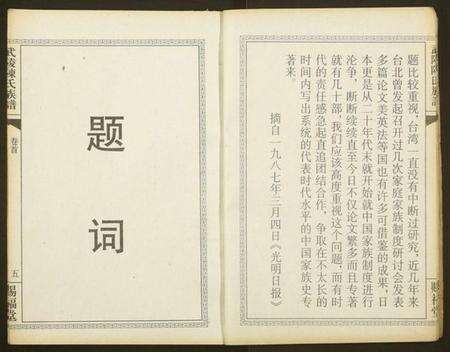 题比较重视，台湾一直没有中断过研究，近几年来
台北曾发起召开过几次家庭家族制度研讨会发表
多篇论文美英法等国也有许多可借鉴的成果，日
本更是从二十年代末就开始就中国家族制度进行
论争，断断续续直至今日不仅论文繁多而且专著
就有几十部，我们应该高度重视这个问题，而有时
代的责任感急起直追团结合作，争取在不太长的
时间内写出系统的代表时代水平的中国家族史专
著来。
摘自一九八七年三月四日《光明日报》
题词
武陵陳氏族譜
卷首
五
賜福堂